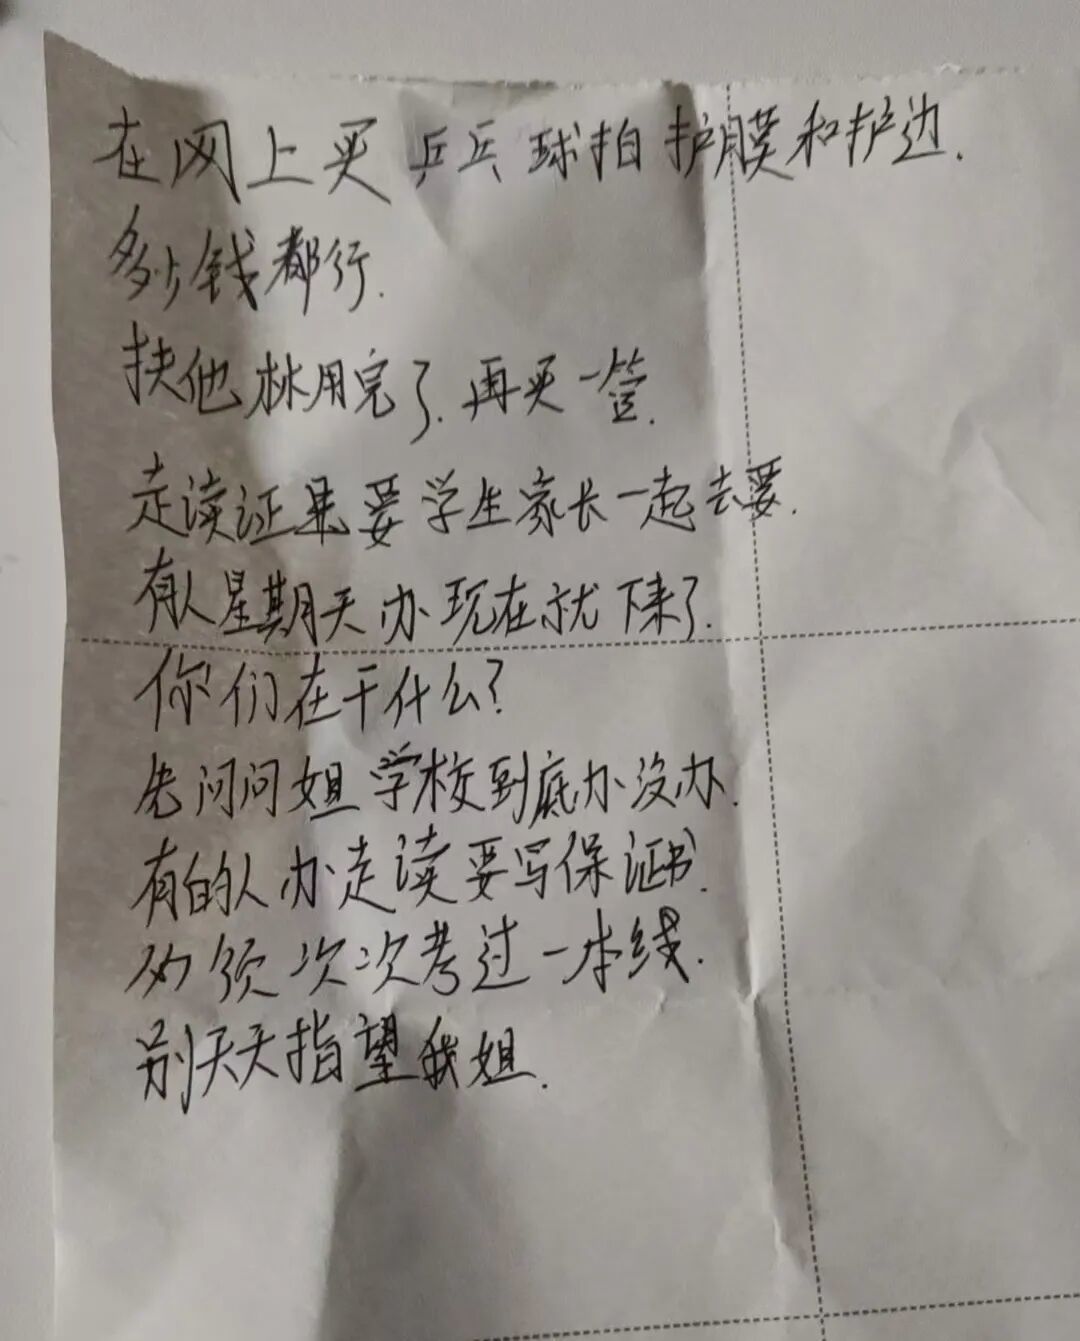 在网上买乒乓球拍护膜和护边.
多少钱都行.
扶他林用完了.再买一管.
走读证是要学生家长一起去要.
有人星期天办现在就下来了.
你们在干什么?
先问问姐学校到底办没办.
有的人办走读要写保证书.
必须次次考过一本线.
别天天指望我姐.